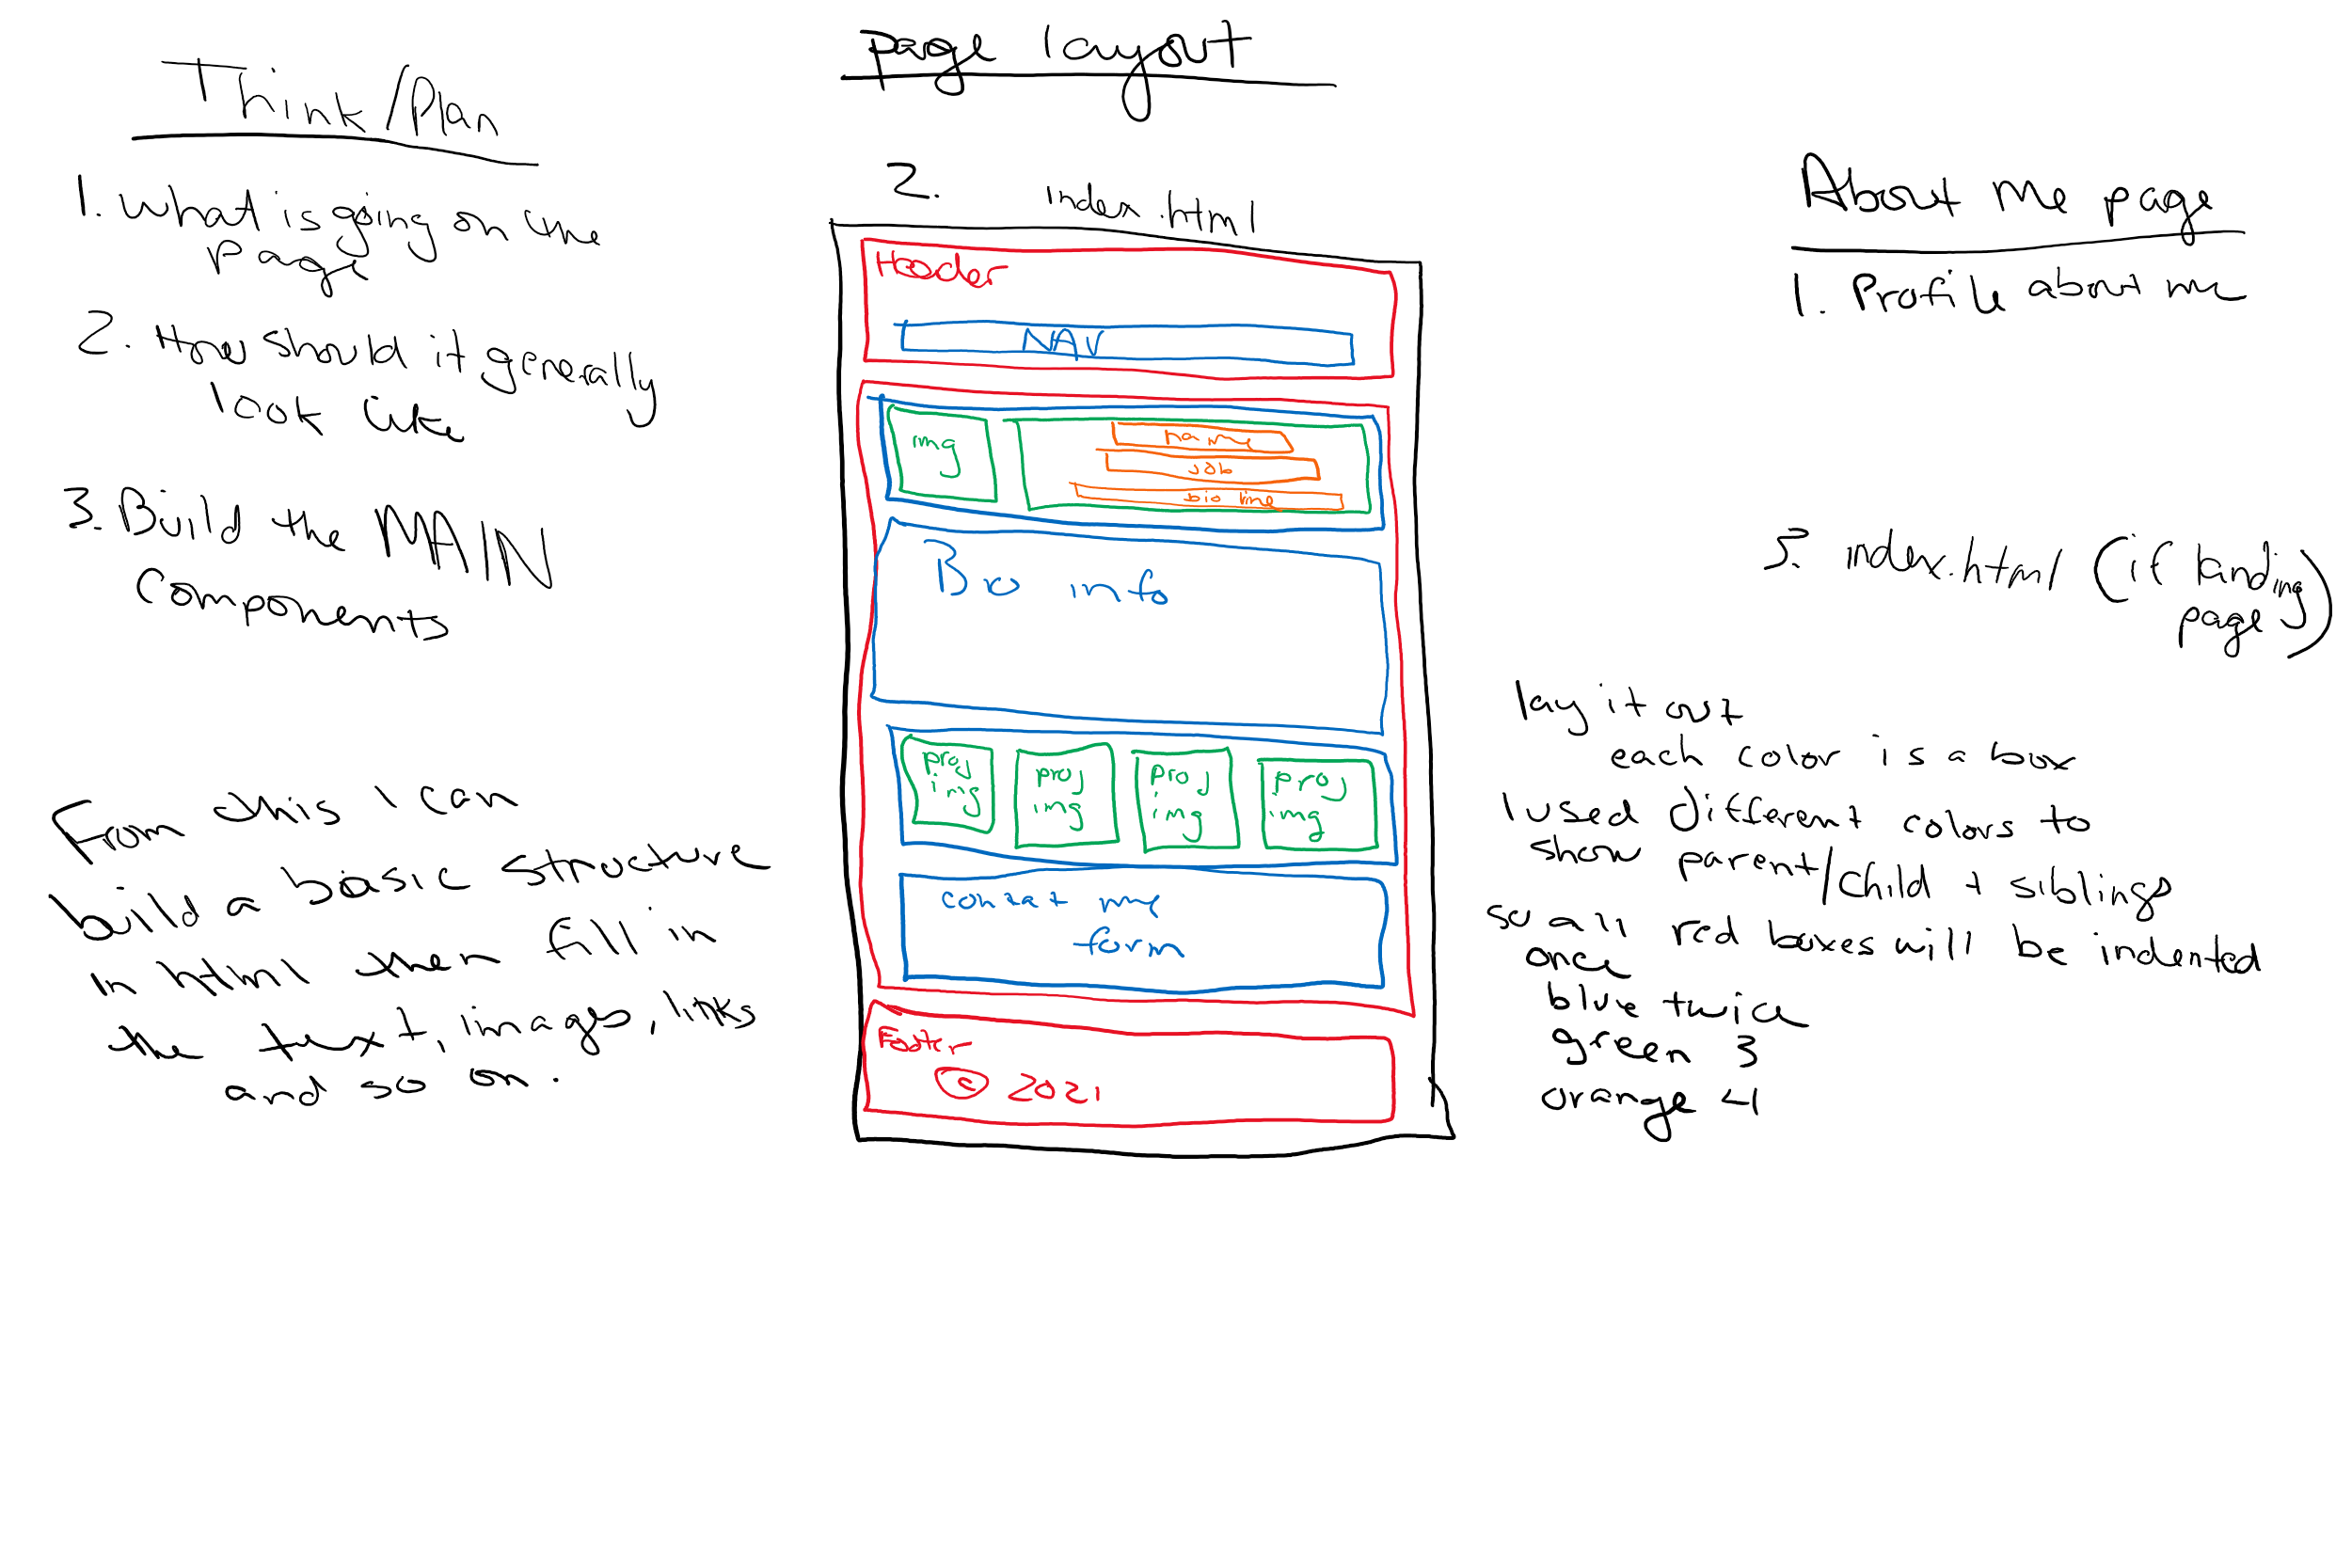 page layout
Think/Plan
1. What is going on the
page
2. How should it generally
look like
3. Build the MAIN
components
From this I can
build a basic structure
in html then fill in
the text, images, links
and so on.
2.
index.html
Header
NAV
img
name
job
bio line
Bio info
proj
img
proj
img
proj
img
proj
img
contact me
form
Footer
© 2021
About Me page
1. Profile about me
3. index.html (if landing
page)
lay it out
each color is a box
I used different colors to
show parent/child + siblings
so all red boxes will be indented
once
blue twice
green 3
orange 4